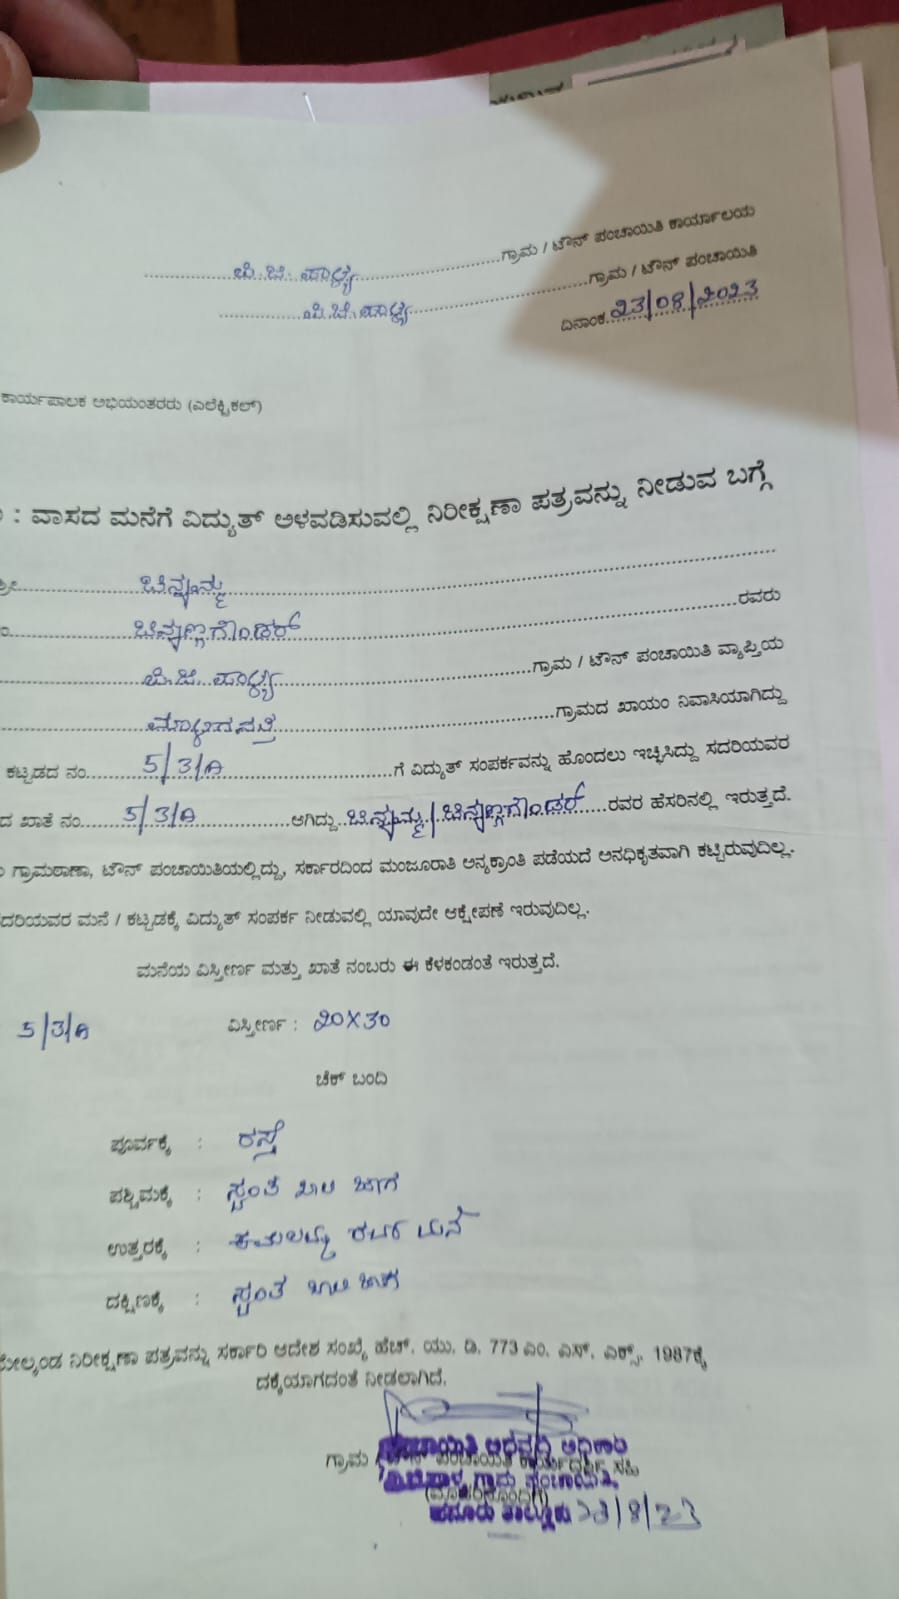 ಪಿ.ಜಿ. ಪಾಳ್ಯ ಗ್ರಾಮ / ಟೌನ್ ಪಂಚಾಯಿತಿ ಕಾರ್ಯಾಲಯ
ಪಿ.ಜಿ. ಪಾಳ್ಯ ಗ್ರಾಮ / ಟೌನ್ ಪಂಚಾಯಿತಿ
ದಿನಾಂಕ 23/08/2023
ಕಾರ್ಯಪಾಲಕ ಅಭಿಯಂತರರು (ಎಲೆಕ್ಟ್ರಿಕಲ್)
: ವಾಸದ ಮನೆಗೆ ವಿದ್ಯುತ್ ಅಳವಡಿಸುವಲ್ಲಿ ನಿರೀಕ್ಷಣಾ ಪತ್ರವನ್ನು ನೀಡುವ ಬಗ್ಗೆ
ಚಿನ್ನಮ್ಮ
ಚಿನ್ನಣ್ಣಗೌಂಡರ್ ರವರು
ಪಿ.ಜಿ. ಪಾಳ್ಯ ಗ್ರಾಮ / ಟೌನ್ ಪಂಚಾಯಿತಿ ವ್ಯಾಪ್ತಿಯ
ಗ್ರಾಮದ ಖಾಯಂ ನಿವಾಸಿಯಾಗಿದ್ದು
ಕಟ್ಟಡದ ನಂ 5/3/A ಗೆ ವಿದ್ಯುತ್ ಸಂಪರ್ಕವನ್ನು ಹೊಂದಲು ಇಚ್ಛಿಸಿದ್ದು ಸದರಿಯವರ
ದ ಖಾತೆ ನಂ 5/3/A ಆಗಿದ್ದು ಚಿನ್ನಮ್ಮ / ಚಿನ್ನಣ್ಣಗೌಂಡರ್ ರವರ ಹೆಸರಿನಲ್ಲಿ ಇರುತ್ತದೆ.
ಗ್ರಾಮಠಾಣಾ, ಟೌನ್ ಪಂಚಾಯಿತಿಯಲ್ಲಿದ್ದು, ಸರ್ಕಾರದಿಂದ ಮಂಜೂರಾತಿ ಅನ್ಯಕ್ರಾಂತಿ ಪಡೆಯದೆ ಅನಧಿಕೃತವಾಗಿ ಕಟ್ಟಿರುವುದಿಲ್ಲ.
ಸದರಿಯವರ ಮನೆ / ಕಟ್ಟಡಕ್ಕೆ ವಿದ್ಯುತ್ ಸಂಪರ್ಕ ನೀಡುವಲ್ಲಿ ಯಾವುದೇ ಆಕ್ಷೇಪಣೆ ಇರುವುದಿಲ್ಲ.
ಮನೆಯ ವಿಸ್ತೀರ್ಣ ಮತ್ತು ಖಾತೆ ನಂಬರು ಈ ಕೆಳಕಂಡಂತೆ ಇರುತ್ತದೆ.
5/3/A ವಿಸ್ತೀರ್ಣ : 20X30
ಚೆಕ್ ಬಂದಿ
ಪೂರ್ವಕ್ಕೆ : ರಸ್ತೆ
ಪಶ್ಚಿಮಕ್ಕೆ : ಸ್ವಂತ ಖಾಲಿ ಜಾಗ
ಉತ್ತರಕ್ಕೆ : ಕಮಲಮ್ಮ ರವರ ಮನೆ
ದಕ್ಷಿಣಕ್ಕೆ : ಸ್ವಂತ ಖಾಲಿ ಜಾಗ
ಮೇಲ್ಕಂಡ ನಿರೀಕ್ಷಣಾ ಪತ್ರವನ್ನು ಸರ್ಕಾರಿ ಆದೇಶ ಸಂಖ್ಯೆ ಹೆಚ್. ಯು. ಡಿ. 773 ಎಂ. ಎಸ್. ಎಕ್ಸ್. 1987ಕ್ಕೆ
ದಕ್ಕೆಯಾಗದಂತೆ ನೀಡಲಾಗಿದೆ.
ಪಂಚಾಯಿತಿ ಅಭಿವೃದ್ಧಿ ಅಧಿಕಾರಿ
ಗ್ರಾಮ / ಟೌನ್ ಪಂಚಾಯಿತಿ ಕಾರ್ಯದರ್ಶಿ ಸಹಿ
ಪಿ.ಜಿ.ಪಾಳ್ಯ ಗ್ರಾಮ ಪಂಚಾಯಿತಿ
(ಮೊಹರಿನೊಂದಿಗೆ)
ಹನೂರು ತಾಲ್ಲೂಕು 23/8/23